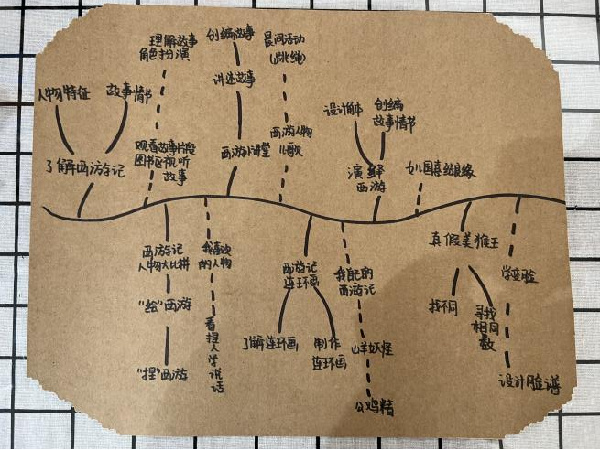 理解故事
角色扮演
创编故事
晨间活动
(跳绳)
人物特征
故事情节
讲述故事
设计剧本
创编
故事情节
观看故事片段
图书区视听
故事
西游小讲堂
西游人物
儿歌
了解西游记
演绎
西游
女儿国喜结良缘
西游记
人物大比拼
我喜欢
的人物
西游记
连环画
我配的
西游记
真假美猴王
学变脸
"绘"西游
看捏人学说话
了解连环画
制作
连环画
山羊妖怪
找不同
寻找
相同
数
"捏"西游
公鸡精
设计脸谱